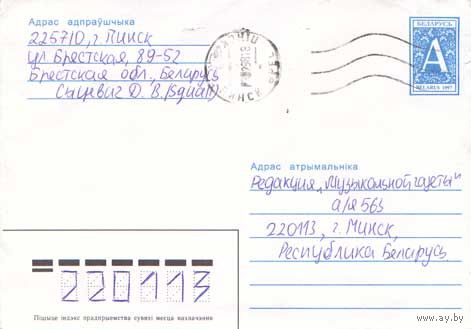 Адрас адпраўшчыка
225710, г. Пинск
ул Брестская, 89-52
Брестская обл., Беларусь
Сацевич Д. В.
БЕЛАРУСЬ
A
BELARUS 1997
ПІНСК
МИНСК
Адрас атрымальніка
Редакция „Музыкальной газеты"
а/я 563
220113, г. Минск,
Республика Беларусь
220113
Пішыце індэкс прадпрыемства сувязі месца назначэння
www.ay.by